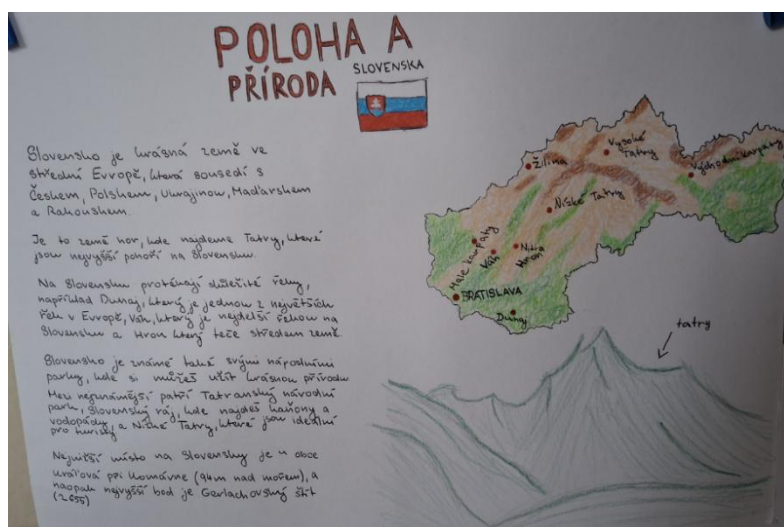 POLOHA A
PŘÍRODA
SLOVENSKA
Slovensko je krásná země ve
střední Evropě, která sousedí s
Českem, Polskem, Ukrajinou, Maďarskem
a Rakouskem.
Je to země hor, kde najdeme Tatry, které
jsou nejvyšší pohoří na Slovensku.
Na Slovensku protékají důležité řeky,
například Dunaj, který je jednou z největších
řek v Evropě, Váh, který je nejdelší řekou na
Slovensku a Hron který teče středem země.
Slovensko je známé také svými národními
parky, kde si můžeš užít krásnou přírodu
Mezi nejznámější patří Tatranský národní
park, Slovenský ráj, kde najdeš kaňony a
vodopády, a Nízké Tatry, které jsou ideální
pro turisty
Nejnižší místo na Slovensky je u obce
Kráľová při Komárne (94m nad mořem), a
naopak nejvyšší bod je Gerlachovský štít
(2655)
Žilina
Vysoké
Tatry
Východní karpaty
Nízké Tatry
Malé karpaty
Váh
Nitra
Hron
BRATISLAVA
Dunaj
tatry